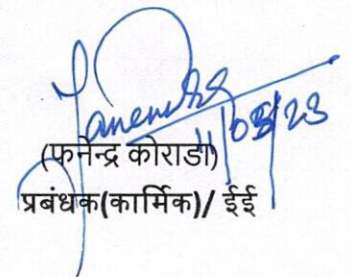 11/03/23
(फनेन्द्र कोराडा)
प्रबंधक(कार्मिक)/ ईई